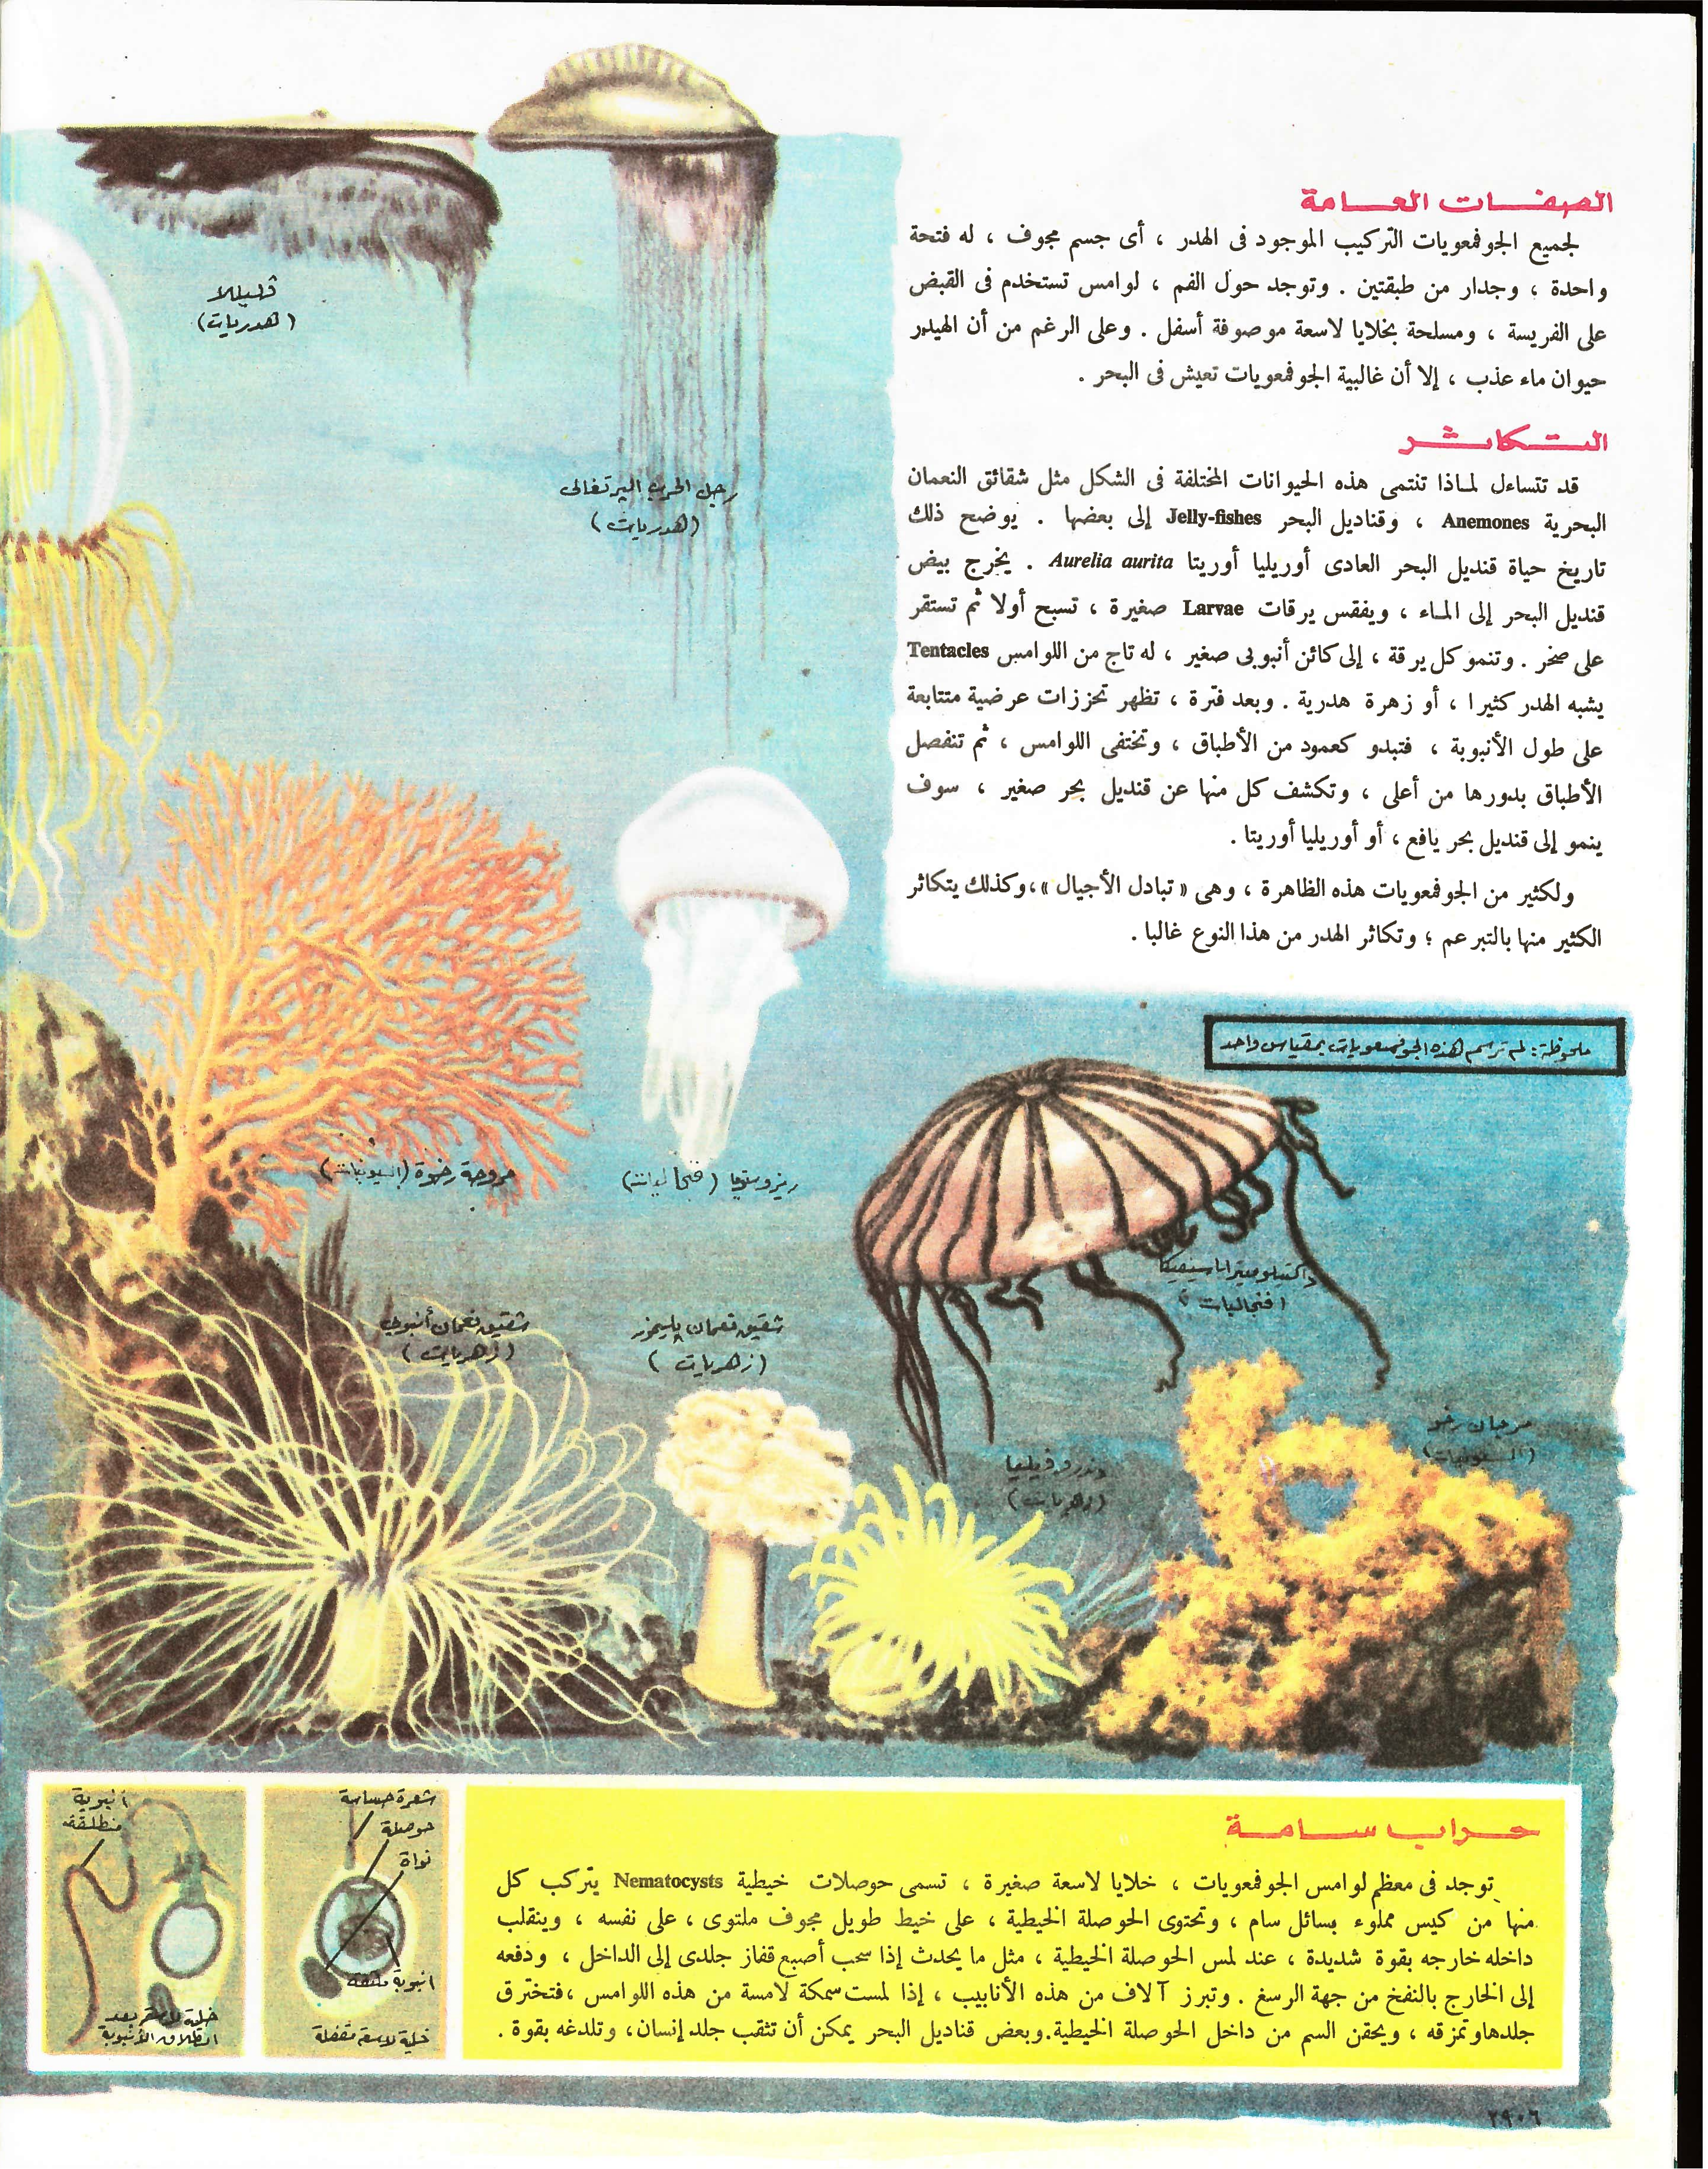 الصفات العامة
لجميع الجوفمعويات التركيب الموجود فى الهدر ، أى جسم مجوف ، له فتحة
واحدة ، وجدار من طبقتين . وتوجد حول الفم ، لوامس تستخدم فى القبض
على الفريسة ، ومسلحة بخلايا لاسعة موصوفة أسفل . وعلى الرغم من أن الهيدر
حيوان ماء عذب ، إلا أن غالبية الجوفمعويات تعيش فى البحر .
التكاثر
قد تتساءل لماذا تنتمى هذه الحيوانات المختلفة فى الشكل مثل شقائق النعمان
البحرية Anemones ، وقناديل البحر Jelly-fishes إلى بعضها . يوضح ذلك
تاريخ حياة قنديل البحر العادى أوريليا أوريتا Aurelia aurita . يخرج بيض
قنديل البحر إلى الماء ، ويفقس يرقات Larvae صغيرة ، تسبح أولا ثم تستقر
على صخر . وتنمو كل يرقة ، إلى كائن أنبوبى صغير ، له تاج من اللوامس Tentacles
يشبه الهدر كثيرا ، أو زهرة هدرية . وبعد فترة ، تظهر تحززات عرضية متتابعة
على طول الأنبوبة ، فتبدو كعمود من الأطباق ، وتختفى اللوامس ، ثم تنفصل
الأطباق بدورها من أعلى ، وتكشف كل منها عن قنديل بحر صغير ، سوف
ينمو إلى قنديل بحر يافع ، أو أوريليا أوريتا .
ولكثير من الجوفمعويات هذه الظاهرة ، وهى « تبادل الأجيال »،وكذلك يتكاثر
الكثير منها بالتبرعم ؛ وتكاثر الهدر من هذا النوع غالبا .
ملحوظة: لم ترسم هذه الجوفمعويات بمقياس واحد
ڤليللا
(هدريات)
رجل الحرب البرتغالى
(هدريات)
مروحة رخوة (السيونيات)
ريزوستوما (فنجاليات)
داكتيلوميترا باسيفيكا
(فنجاليات)
شقيق نعمان أنبوبي
(زهريات)
شقيق نعمان
(زهريات)
دندروفيليا
(زهريات)
مرجان رخو
حراب سامة
توجد فى معظم لوامس الجوفمعويات ، خلايا لاسعة صغيرة ، تسمى حوصلات خيطية Nematocysts يتركب كل
منها من كيس مملوء بسائل سام ، وتحتوى الحوصلة الخيطية ، على خيط طويل مجوف ملتوى ، على نفسه ، وينقلب
داخله خارجه بقوة شديدة ، عند لمس الحوصلة الخيطية ، مثل ما يحدث إذا سحب أصبع قفاز جلدى إلى الداخل ، ودفعه
إلى الخارج بالنفخ من جهة الرسغ . وتبرز آلاف من هذه الأنابيب ، إذا لمست سمكة لامسة من هذه اللوامس ،فتخترق
جلدهاوتمزقه ، ويحقن السم من داخل الحوصلة الخيطية.وبعض قناديل البحر يمكن أن تثقب جلد إنسان، وتلدغه بقوة .
شعرة حساسة
حوصلة
نواة
انبوبة ملتفة
خلية لاسعة مقفلة
انبوبة
منطلقة
خلية لاسعة بعد
انطلاق الأنبوبة
٢٩٠٦